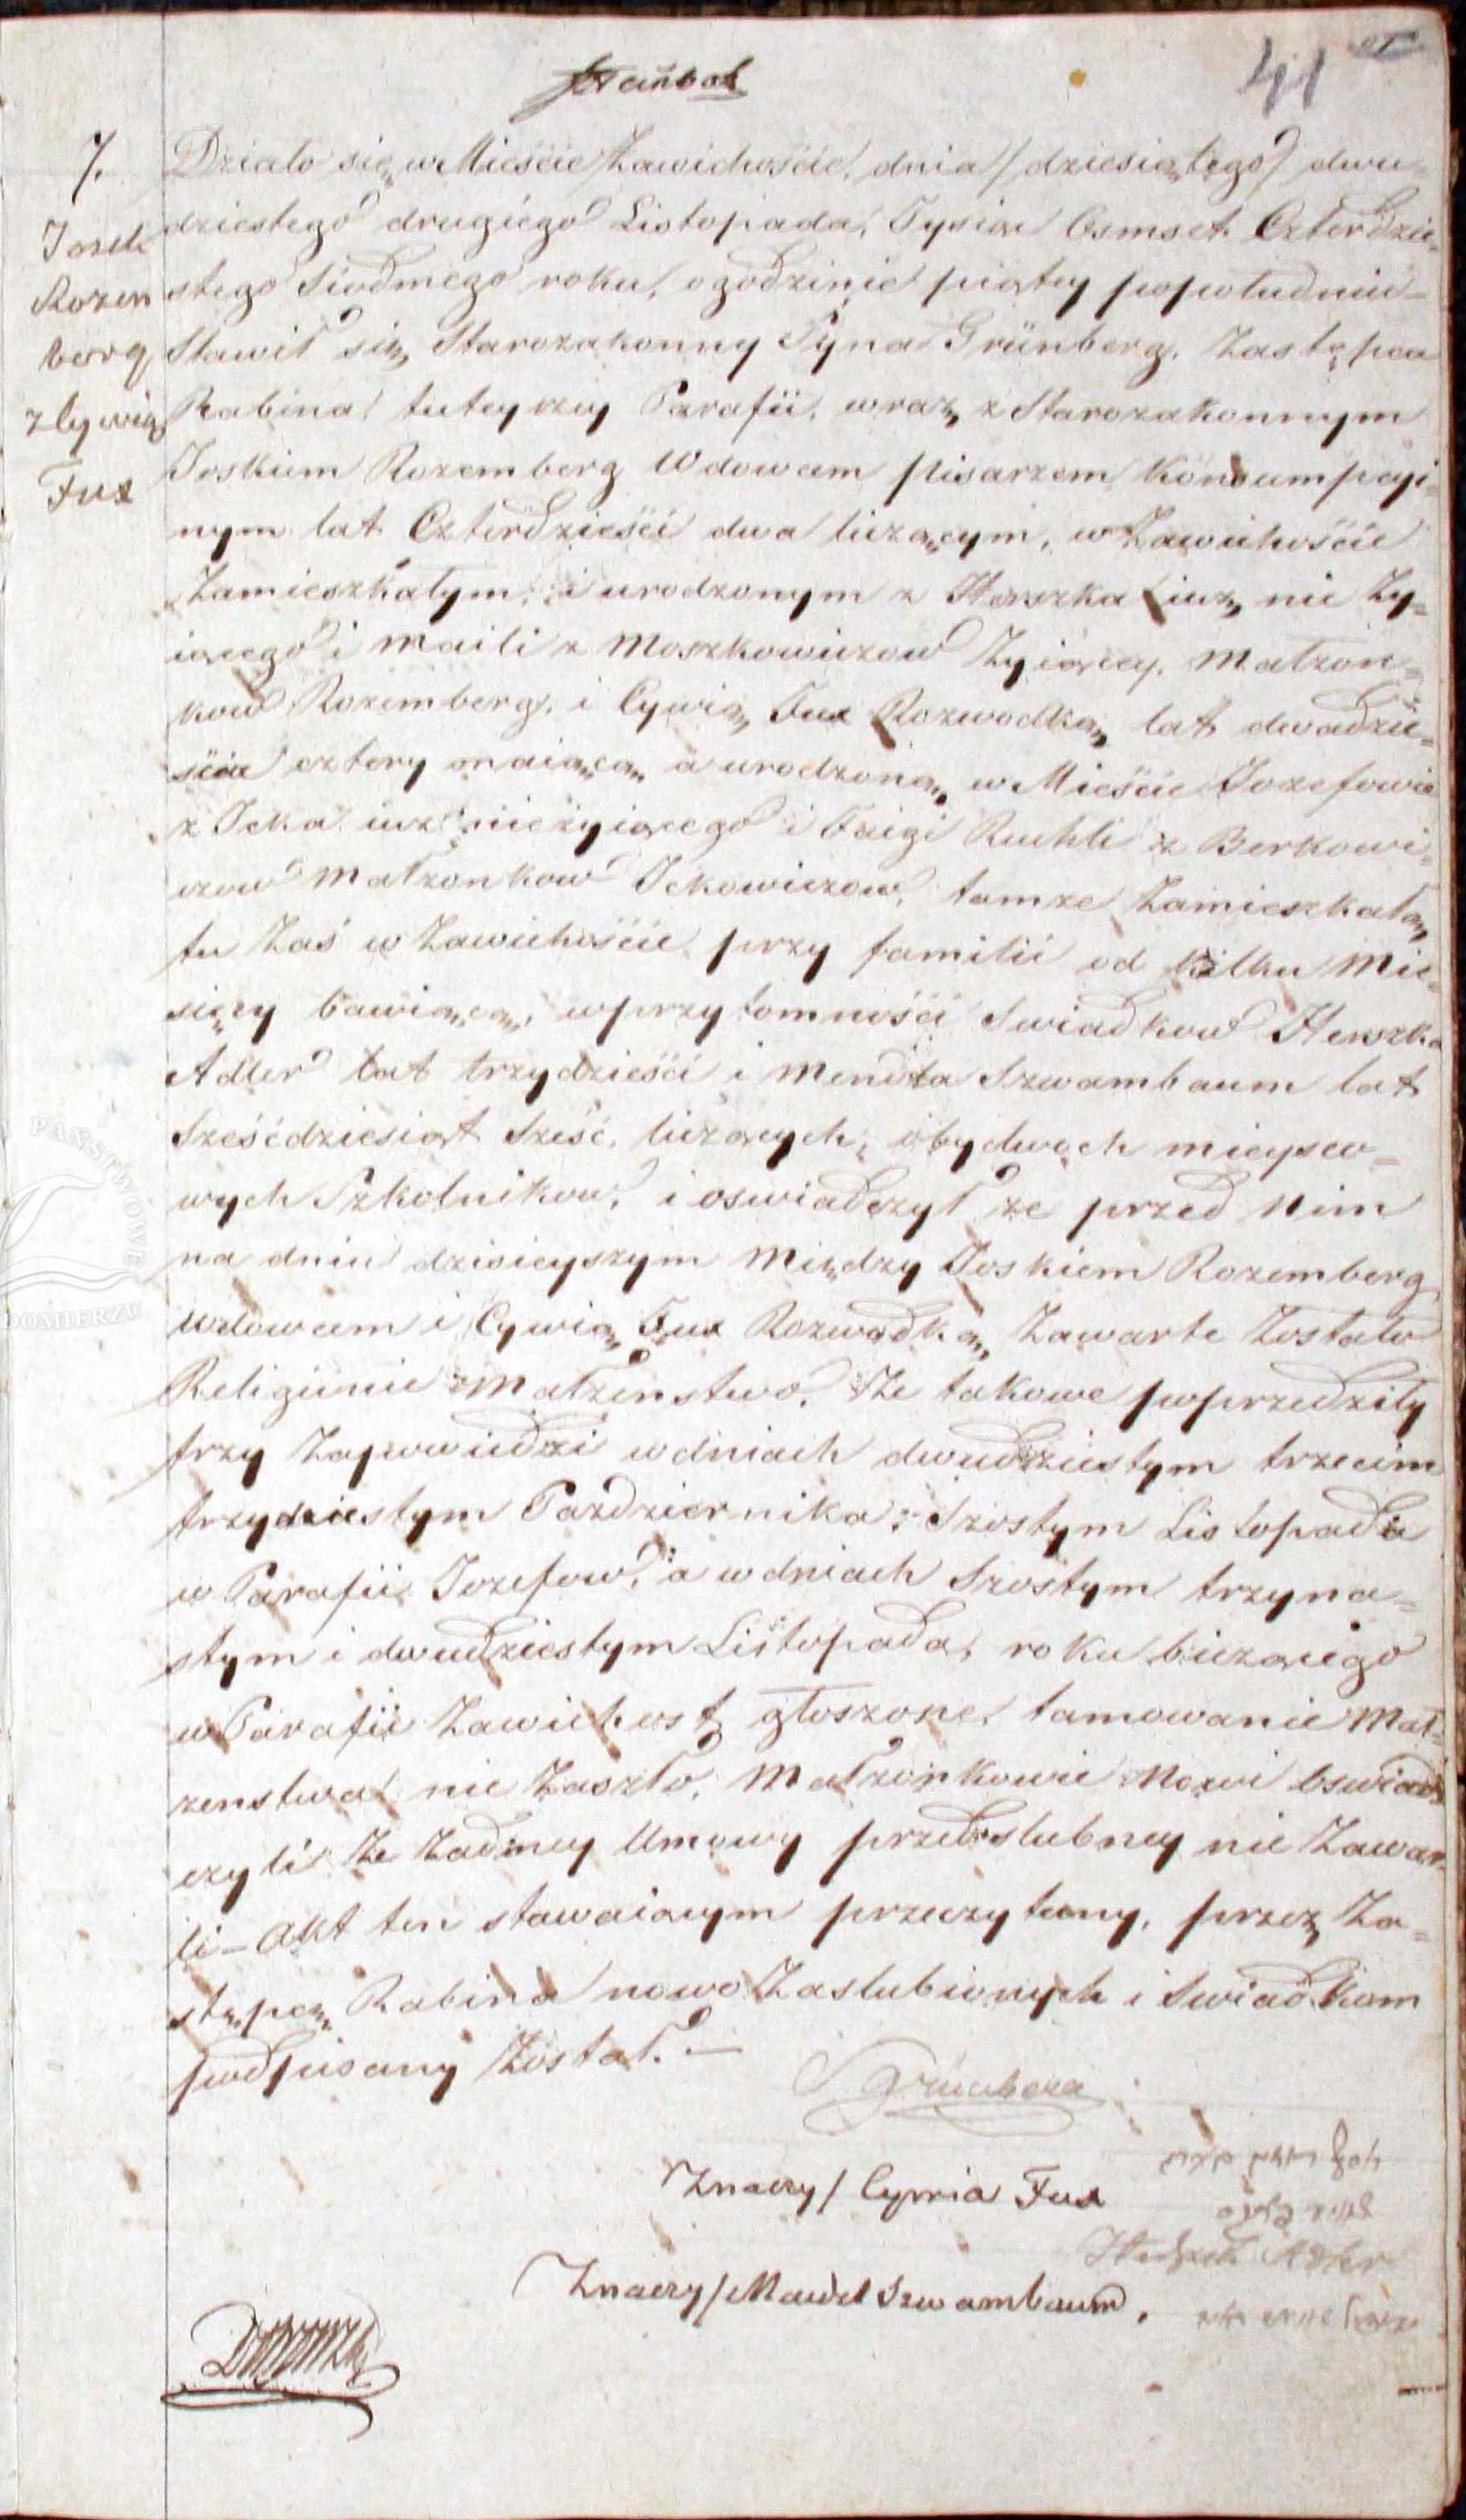 41
7.
Josek
Rozen
berg
z Cywią
Fux
Działo się w Mieście Zawichoście, dnia /dziesiątego/ dwu-
dziestego drugiego Listopada, Tysiąc Osmset Czterdzie-
stego Siodmego roku, o godzinie piątey popołudniu -
Stawił się Starozakonny Grünberg, Zastępca
Rabina tuteyszey Parafii, wraz z Starozakonnym
Joskiem Rozemberg Wdowcem pisarzem Konsumpcyi-
nym lat Czterdzieści dwa liczącym, w Zawichoście
Zamieszkałym, i urodzonym z Herszka iuz nie Zy-
iącego i Maili z Moszkowiczow Zyiącey, Małzon-
kow Rozemberg, i Cywią Fux Rozwodką lat dwadzie-
scia cztery maiącą a urodzoną w Mieście Jozefowie
z Icka iuz nieżyiącego i Faigi Ruchli z Berkowi-
czow Małzonkow Ickowiczow, tamze Zamieszkałą
tu Zaś w Zawichoście przy familii od kilku Mie-
sięcy bawiącą, w przytomności Swiadkow Herszka
Adler lat trzydzieści i Mendla Szwambaum lat
Sześćdziesiąt Sześć, liczących, obydwoch mieysco-
wych Szkolnikow, i oswiadczył ze przed Nim
na dniu dzisieyszym Między Joskiem Rozemberg
Wdowcem i Cywią Fux Rozwodką Zawarte Zostało
Religiinie Małzenstwo, Ze takowe poprzedziły
trzy Zapowiedzi w dniach dwudziestym trzecim
trzydziestym Pazdziernika, Szostym Listopada
w Parafii Jozefow, a w dniach Szostym trzyna-
stym i dwudziestym Listopada, roku biezącego
w Parafii Zawichost głoszone, tamowanie Mał-
zenstwa nie Zaszło, Małzonkowie Nowi Oswiad-
czyli Ze Zadney Umowy przedslubney nie Zawar-
li - Akt ten stawaiącym przeczytany, przez Za-
stępcę Rabina nowo Zaslubionych i Swiadkom
podpisany Został. -
Grünberg
Znaczy / Cywia Fux
Herszek Adler
Znaczy / Mendel Szwambaum.
PAŃSTWOWE